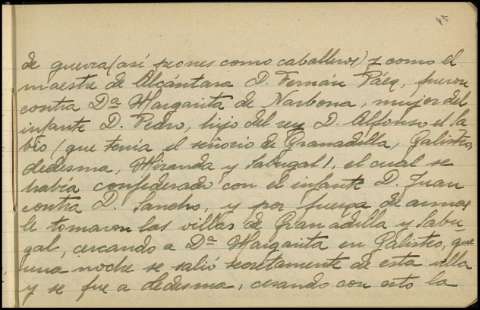 de guerra (así peones como caballeros) y como el
maestre de Alcántara D. Fernán Páez, fueron
contra Dª Margarita de Narbona, mujer del
infante D. Pedro, hijo del rey D. Alfonso el Sa
bio (que tenía el señorío de Granadilla, Galisteo,
Ledesma, Miranda y Sabugal), el cual se
había confederado con el infante D. Juan
contra D. Sancho, y por fuerza de armas
le tomaron las villas de Granadilla y Sabu
gal, cercando a Dª Margarita en Galisteo, que
una noche se salió secretamente de esta villa
y se fue a Ledesma, cesando con esto la